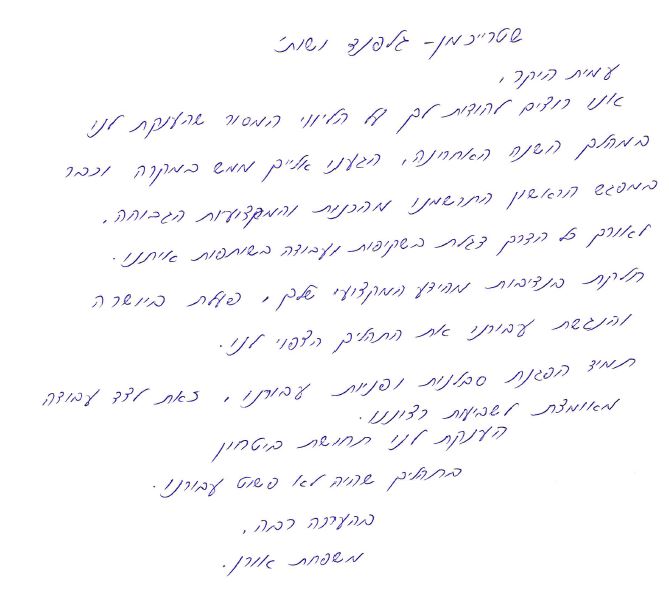 שטרייכמן - גלפנד ושות'
עמית היקר,
אנו רוצים להודות לך על הליווי המסור שהענקת לנו
במהלך השנה האחרונה, הגענו אלייך ממש במקרה וכבר
במפגש הראשון התרשמנו מהכנות והמקצועיות הגבוהה.
לאורך כל הדרך דגלת בשקיפות ועבודה בשותפות איתנו.
חלקת בנדיבות מהידע המקצועי שלך, פעלת ביושרה
והנגשת עבורנו את התהליך הצפוי לנו.
תמיד הפגנת סבלנות ופניות עבורנו, זאת לצד עבודה
מאומצת לשביעות רצוננו.
הענקת לנו תחושת ביטחון
בתהליך שהיה לא פשוט עבורנו.
בהערכה רבה,
משפחת אורן.